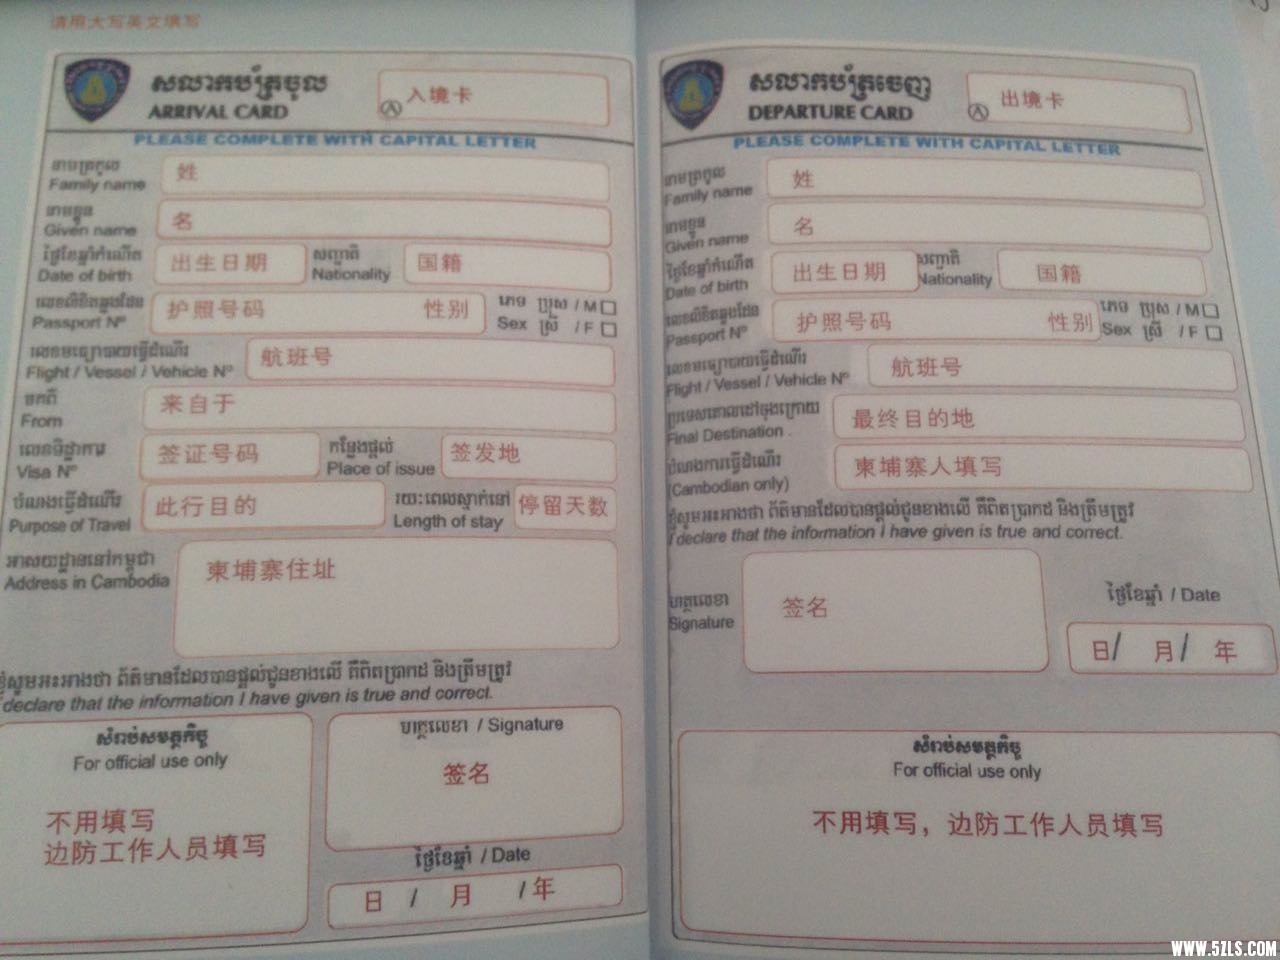 请用大写英文填写
សលាកប័ត្រចូល
ARRIVAL CARD
Ⓐ 入境卡
PLEASE COMPLETE WITH CAPITAL LETTER
នាមត្រកូល
Family name
姓
នាមខ្លួន
Given name
名
ថ្ងៃខែឆ្នាំកំណើត
Date of birth
出生日期
សញ្ជាតិ
Nationality
国籍
លេខលិខិតឆ្លងដែន
Passport Nº
护照号码 性别
ភេទ ប្រុស / M
Sex ស្រី / F
លេខមធ្យោបាយធ្វើដំណើរ
Flight / Vessel / Vehicle Nº
航班号
មកពី
From
来自于
លេខទិដ្ឋាការ
Visa Nº
签证号码
កន្លែងផ្តល់
Place of issue
签发地
បំណងធ្វើដំណើរ
Purpose of Travel
此行目的
រយៈពេលស្នាក់នៅ
Length of stay
停留天数
អាសយដ្ឋាននៅកម្ពុជា
Address in Cambodia
柬埔寨住址
ខ្ញុំសូមអះអាងថា ព័ត៌មានដែលបានផ្តល់ជូនខាងលើ គឺពិតប្រាកដ និងត្រឹមត្រូវ
I declare that the information I have given is true and correct.
សំរាប់សមត្ថកិច្ច
For official use only
不用填写
边防工作人员填写
ហត្ថលេខា / Signature
签名
ថ្ងៃខែឆ្នាំ / Date
日 / 月 / 年
សលាកប័ត្រចេញ
DEPARTURE CARD
Ⓐ 出境卡
PLEASE COMPLETE WITH CAPITAL LETTER
នាមត្រកូល
Family name
姓
នាមខ្លួន
Given name
名
ថ្ងៃខែឆ្នាំកំណើត
Date of birth
出生日期
សញ្ជាតិ
Nationality
国籍
លេខលិខិតឆ្លងដែន
Passport Nº
护照号码 性别
ភេទ ប្រុស / M
Sex ស្រី / F
លេខមធ្យោបាយធ្វើដំណើរ
Flight / Vessel / Vehicle Nº
航班号
ប្រទេសគោលដៅចុងក្រោយ
Final Destination
最终目的地
បំណងការធ្វើដំណើរ
(Cambodian only)
柬埔寨人填写
ខ្ញុំសូមអះអាងថា ព័ត៌មានដែលបានផ្តល់ជូនខាងលើ គឺពិតប្រាកដ និងត្រឹមត្រូវ
I declare that the information I have given is true and correct.
ហត្ថលេខា
Signature
签名
ថ្ងៃខែឆ្នាំ / Date
日/ 月/ 年
សំរាប់សមត្ថកិច្ច
For official use only
不用填写，边防工作人员填写
WWW.5ZLS.COM